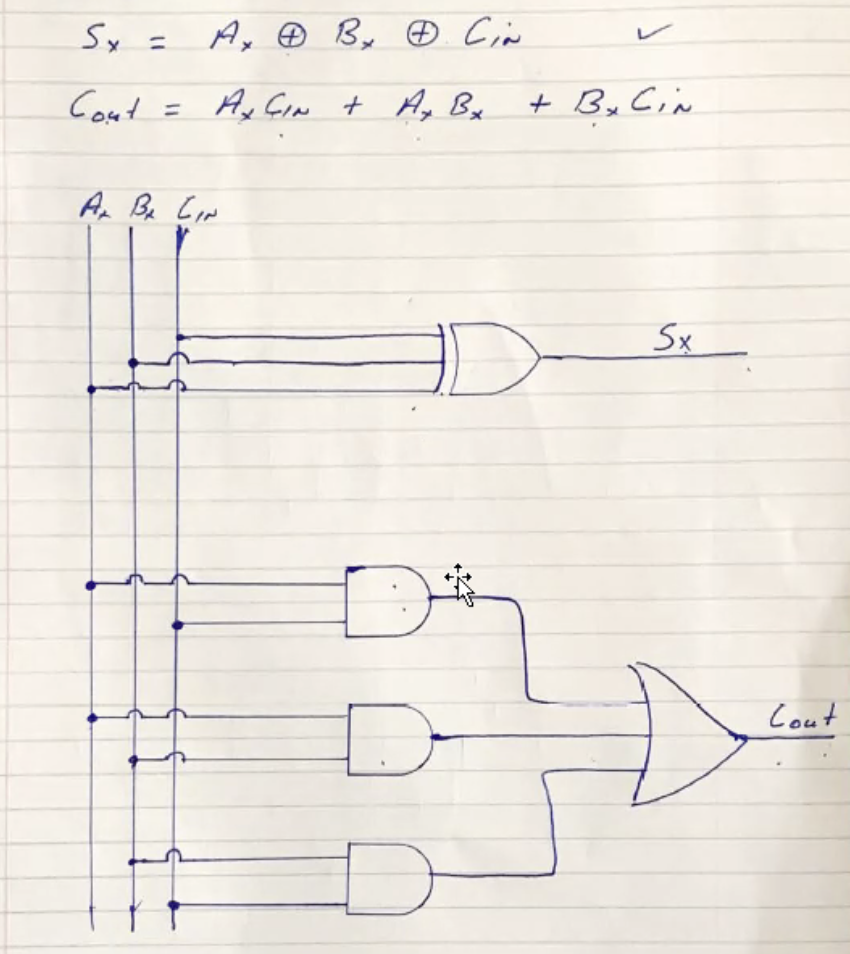 Sx = Ax ⊕ Bx ⊕ Cin ✓
Cout = AxCin + AxBx + BxCin
Ax Bx Cin
Sx
Cout